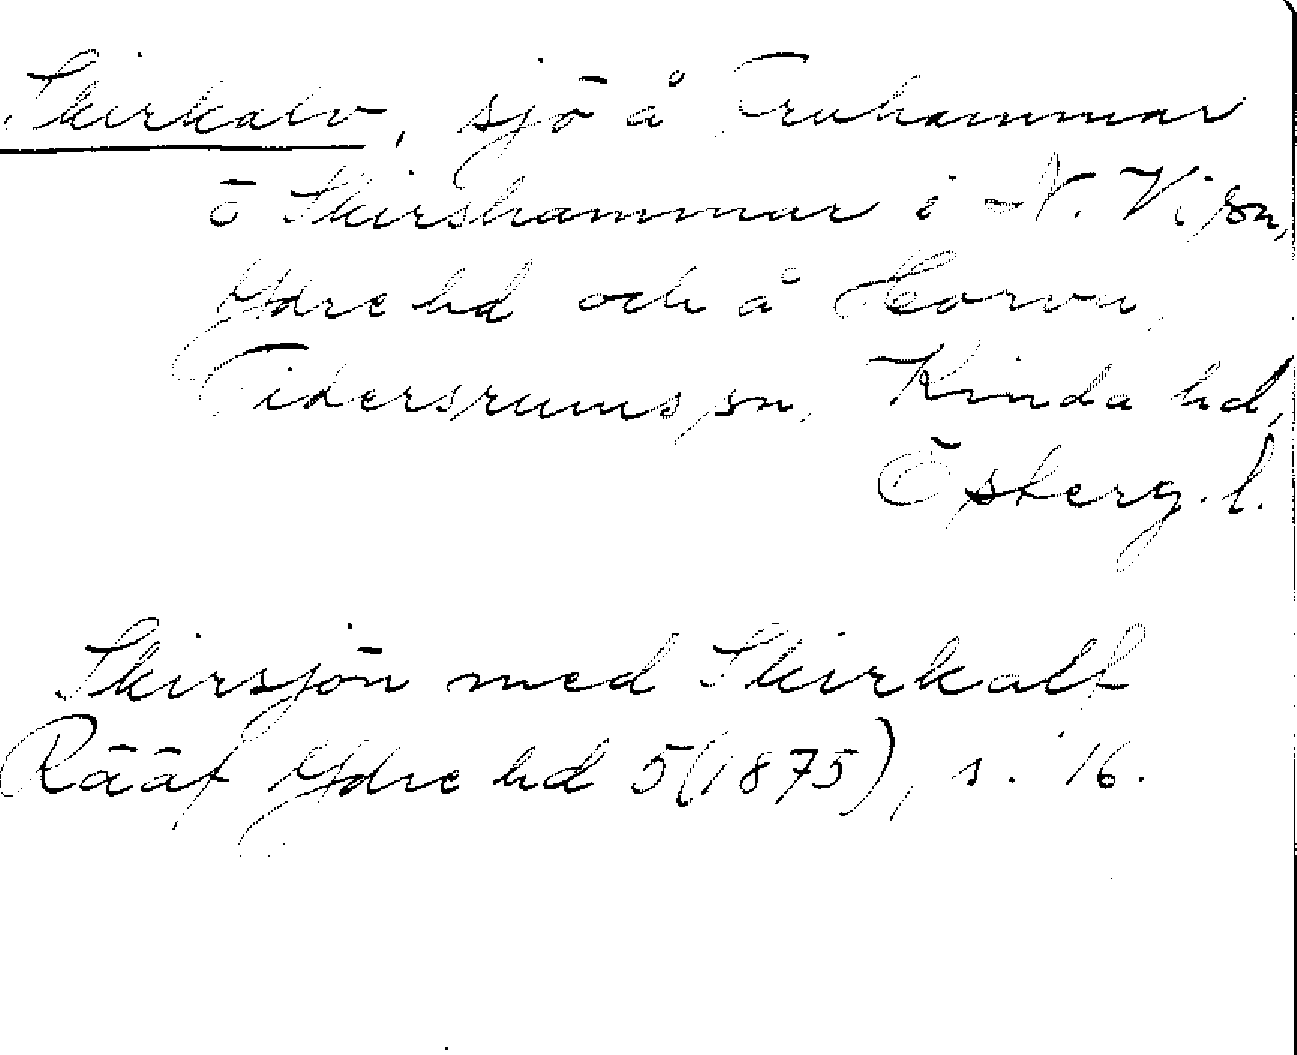 Skirkalv, sjö å Fruhammar
ö Skirshammar i N. Vi sn,
Ydre hd och å Horvu,
Tidersrums sn, Kinda hd,
Österg. l.
Skirsjön med Skirkalf
Rääf Ydre hd 5(1875), s. 16.